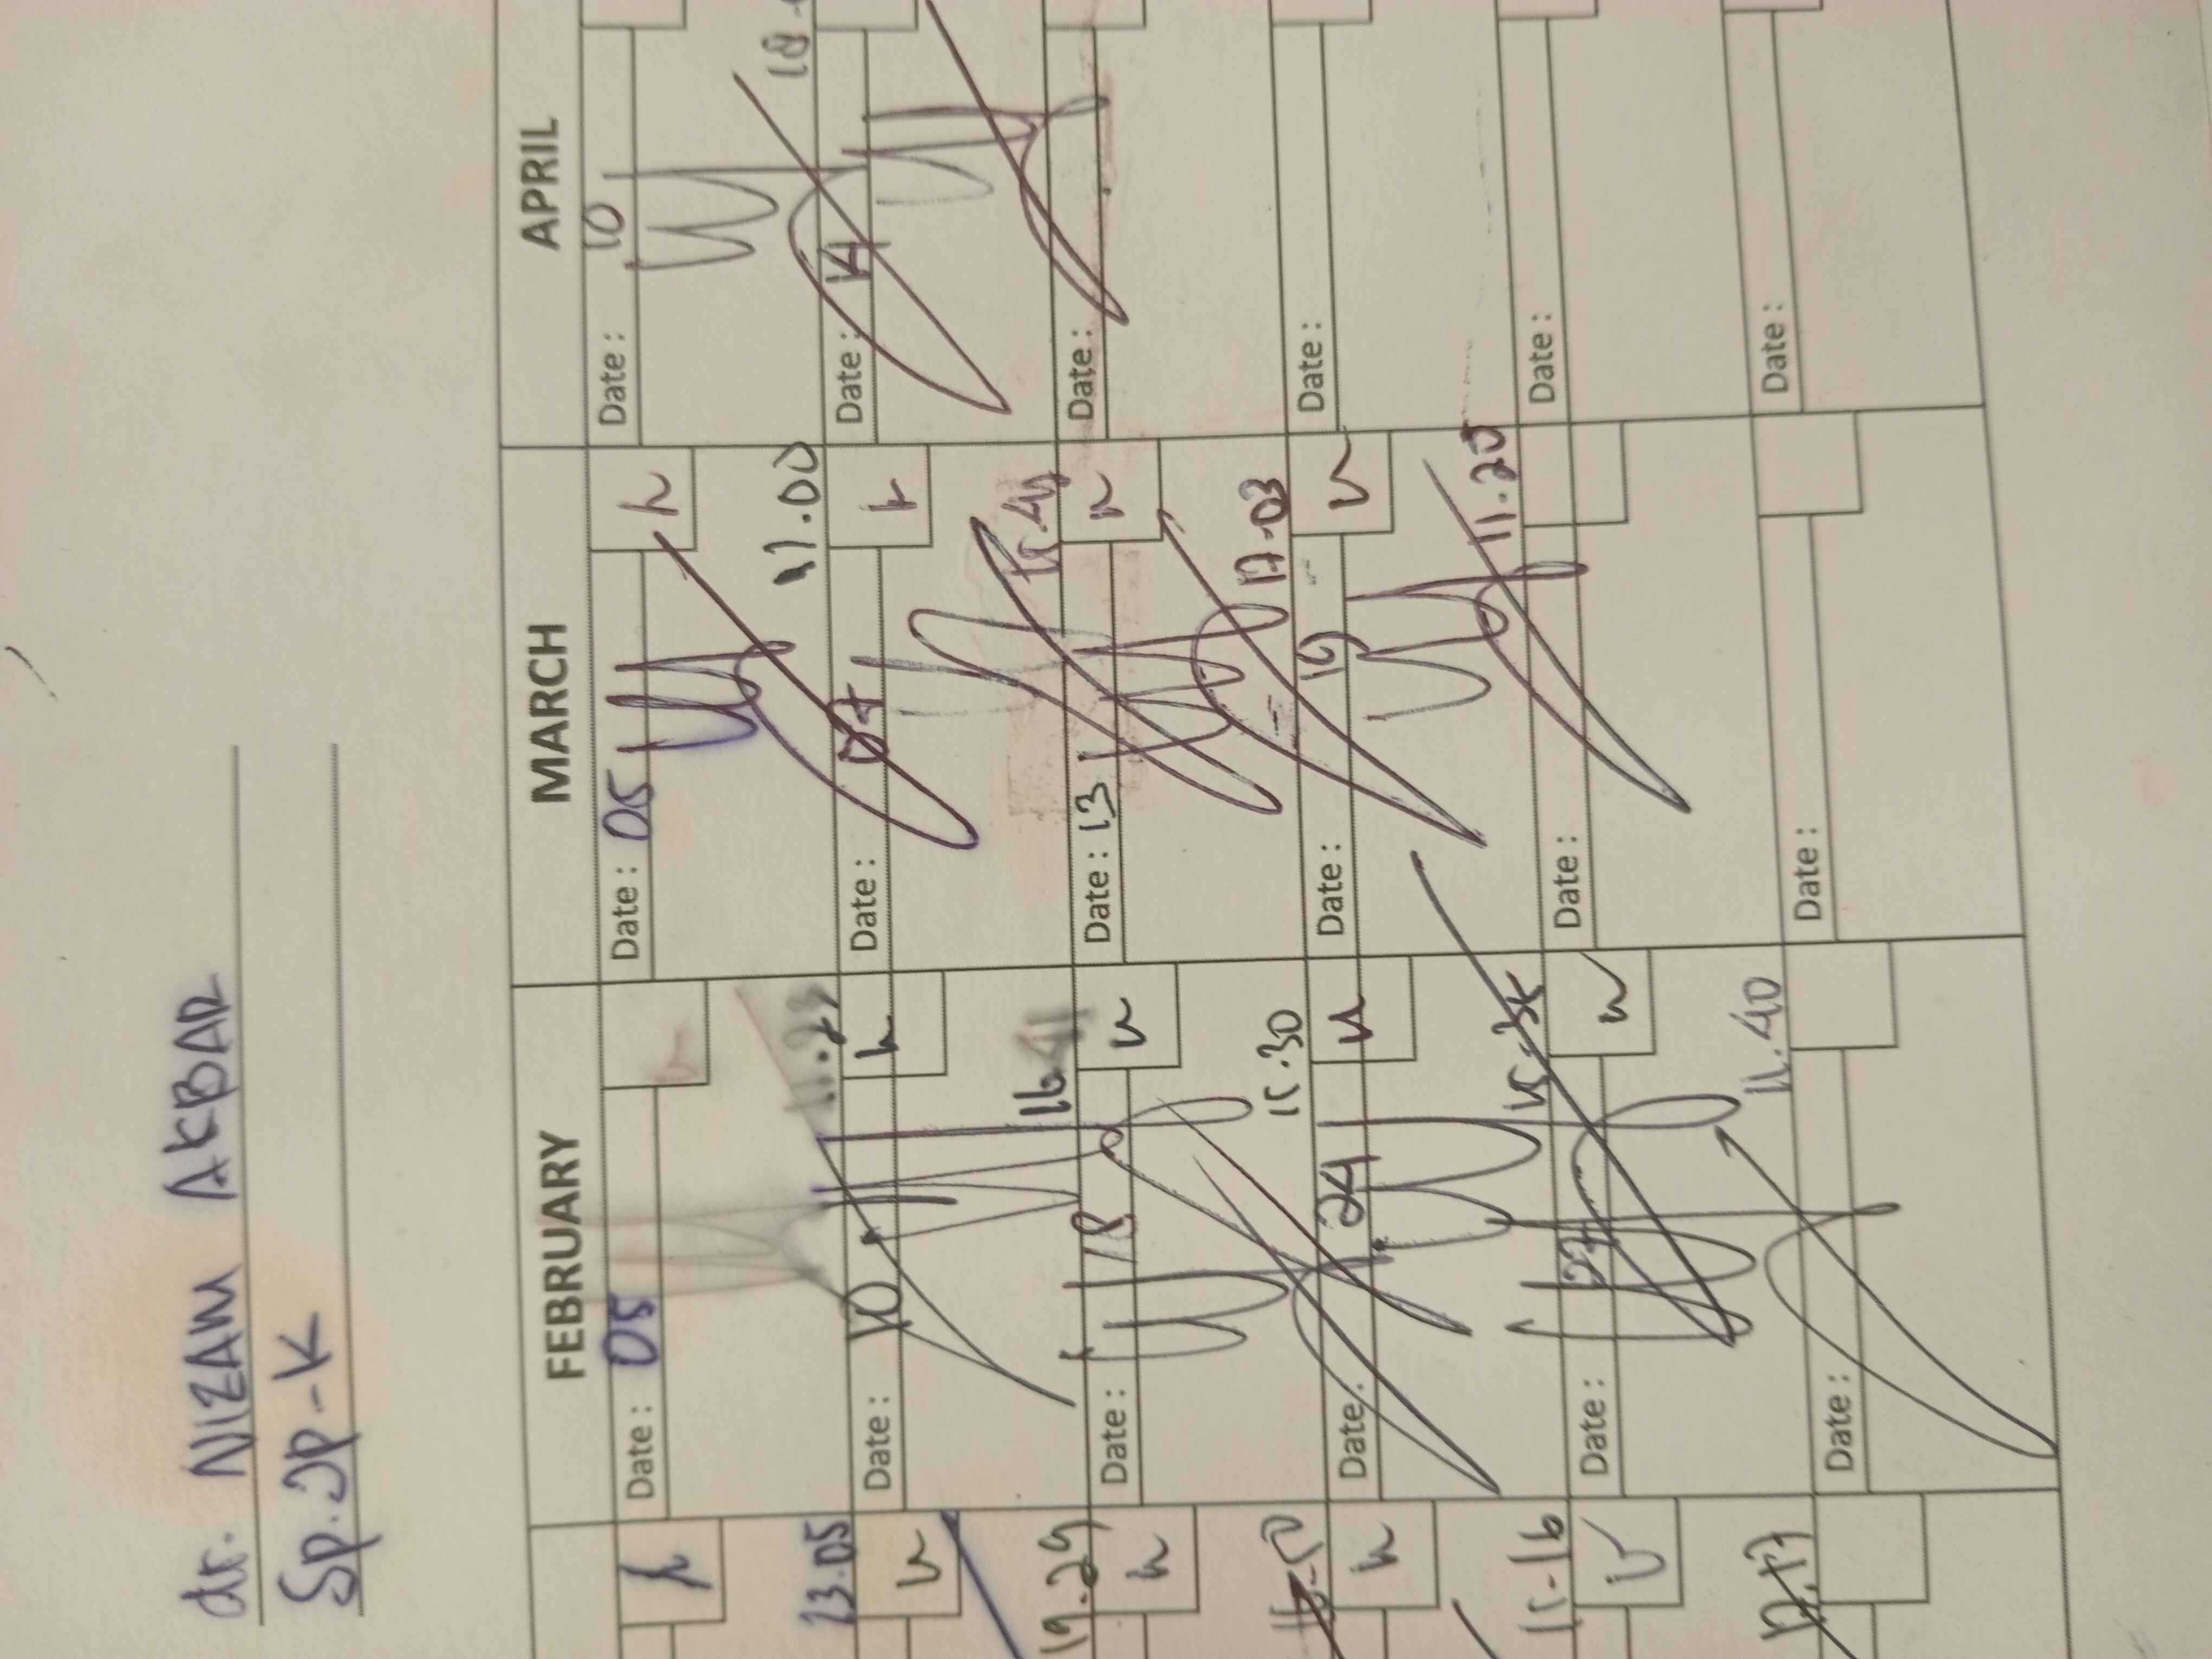 dr. NIZAM AKBAR
Sp.JP-K
FEBRUARY MARCH APRIL
Date: 05 Date: 05 Date: 10
13.05 11.23 17.00
Date: 10 Date: 07 Date: 14
19.29 16.41
Date: 18 Date: 13 Date:
15.30 17.03
Date: 24 Date: 19 Date:
15-16 15.35 11.20
Date: 27 Date: Date:
11.40
Date: Date: Date: